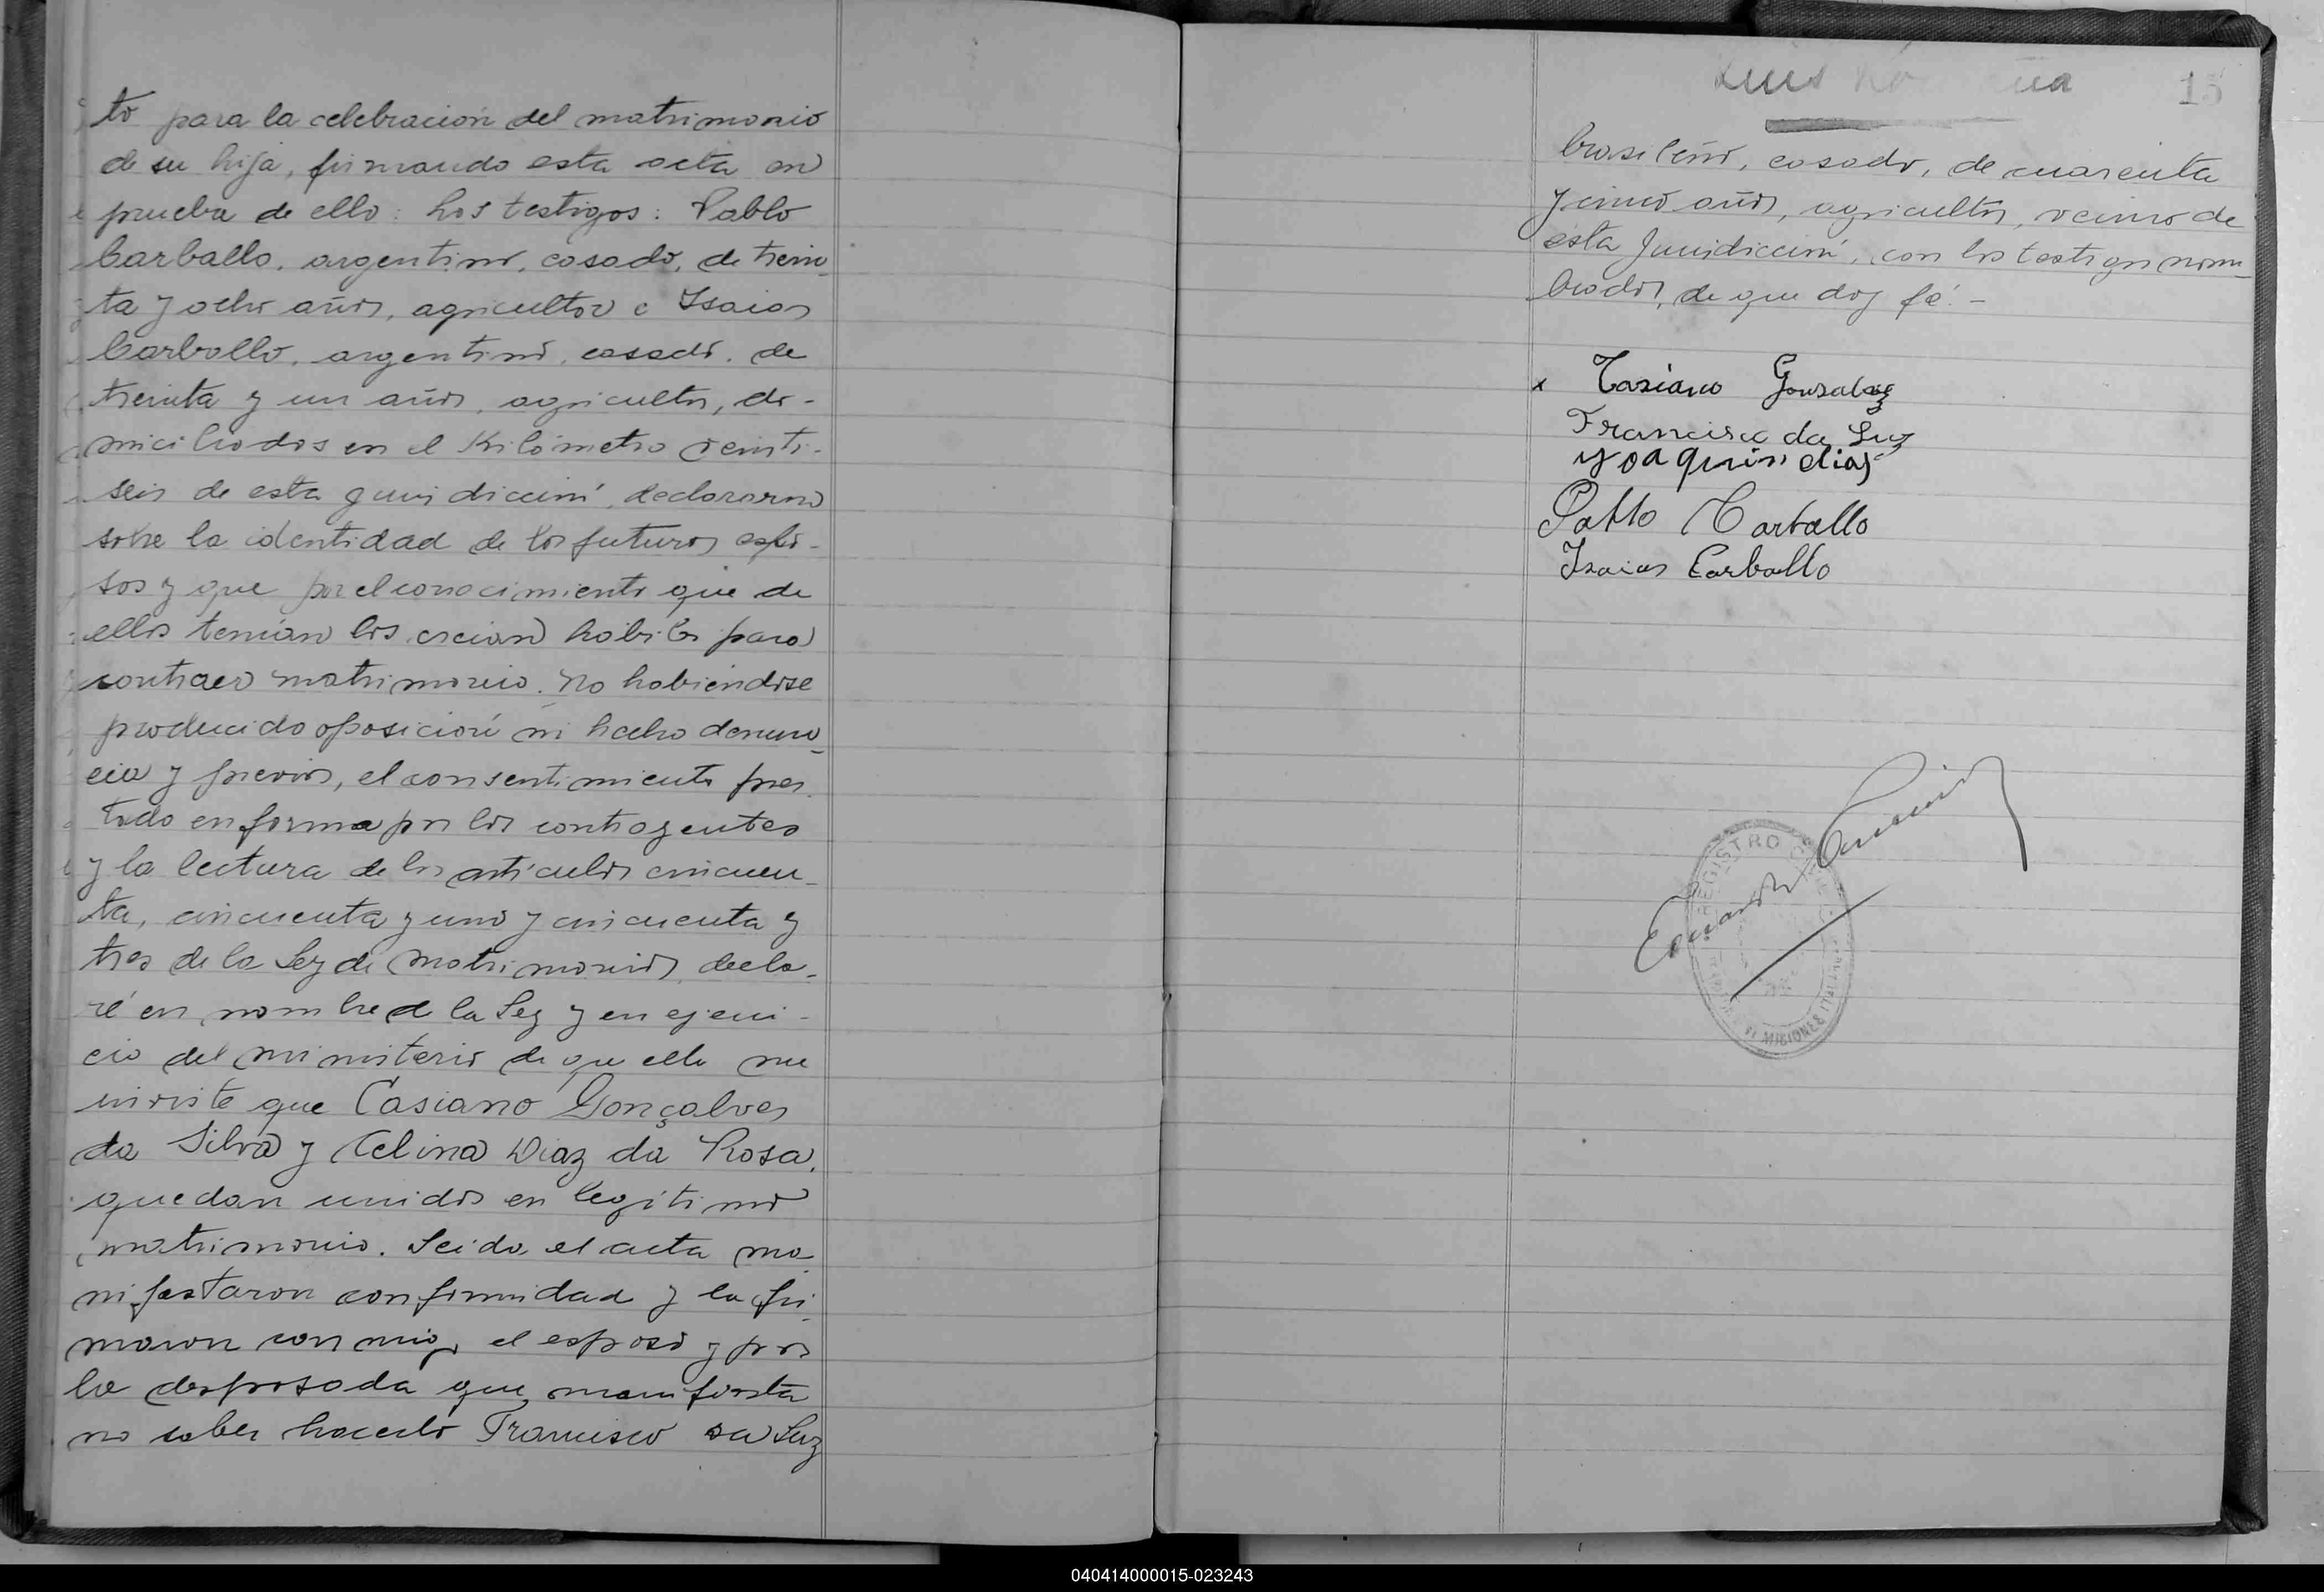 to para la celebración del matrimonio
de su hija, firmando esta acta en
prueba de ello: Los testigos: Pablo
Carballo, argentino, casado, de trein_
ta y ocho años, agricultor e Isaias
Carballo, argentino, casado, de
treinta y un años, agricultor, do-
miciliados en el Kilómetro veinti-
seis de esta jurisdicción, declararon
sobre la identidad de los futuros espo-
sos y que por el conocimiento que de
ellos tenían los creían hábiles para
contraer matrimonio. No habiéndose
producido oposición ni hecho denun_
cia y previos, el consentimiento pres_
tado en forma por los contrayentes
y la lectura de los artículos cincuen_
ta, cincuenta y uno y cincuenta y
tres de la Ley de Matrimonios, decla_
ré en nombre de la Ley y en ejerci-
cio del ministerio de que ella me
inviste que Casiano Gonçalves
da Silva y Celina Diaz da Rosa,
quedan unidos en legítimo
matrimonio. Leida el acta ma_
nifestaron conformidad y la fir_
maron conmigo el esposo y por
la desposada que manifiesta
no saber hacerlo Francisco da Luz
Luis
15
brasileño, casado, de cuarenta
y cinco años, agricultor, vecino de
esta Jurisdicción, con los testigos nom_
brados, de que doy fé.-
x Casiano Gonsalvez
Francisco da Luz
yoaquin dias
Pablo Carballo
Isaias Carballo
REGISTRO
MISIONES
040414000015-023243